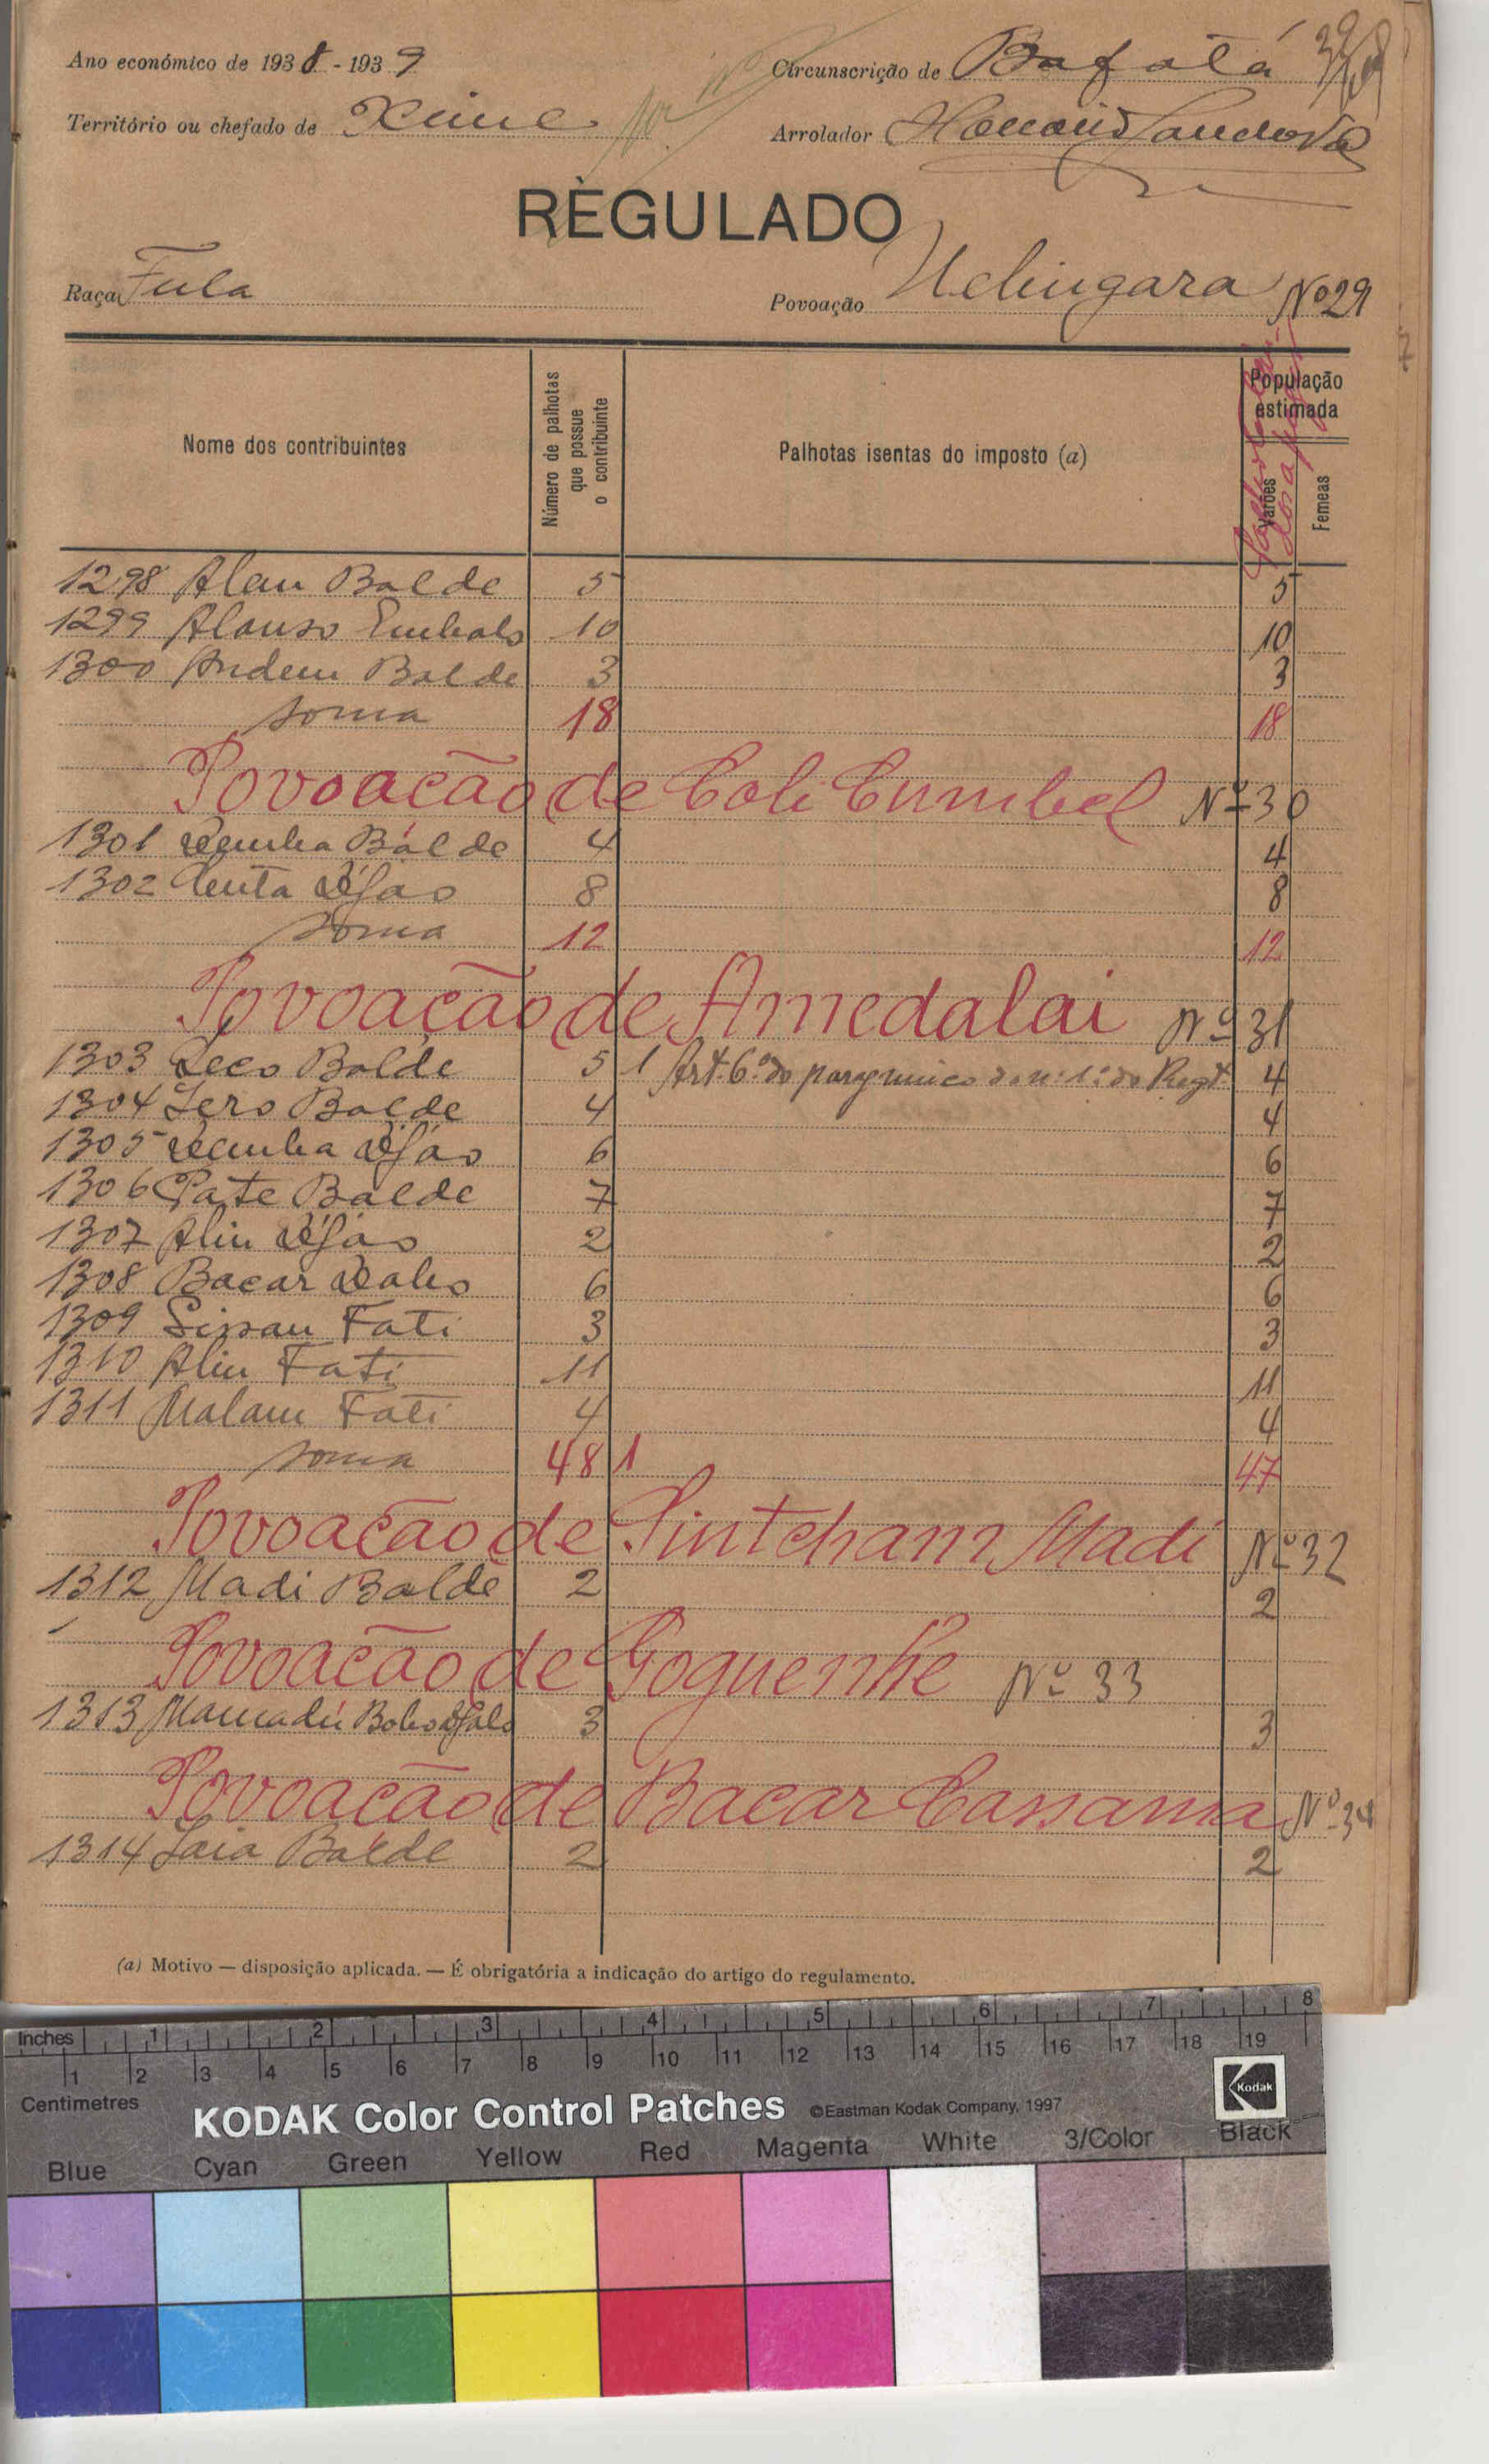 Ano económico de 1938 - 1939
Circunscrição de Bafatá
Território ou chefado de Xime
Arrolador
REGULADO
Raça Fula
Povoação Uchingara Nº 29
Nome dos contribuintes
Número de palhotas que possue o contribuinte
Palhotas isentas do imposto (a)
População estimada
Varões
Femeas
1298 Aleu Balde 5 5
1299 Alanso Embalo 10 10
1300 Andem Balde 3 3
Soma 18 18
Povoação de Coli Cumbel Nº 30
1301 Balde 4 4
1302 8 8
Soma 12 12
Povoação de Amedalai Nº 31
1303 Seco Balde 5 1 Art. 6º do parag unico do nº 1º do Regt. 4
1304 Sero Balde 4 4
1305 6 6
1306 Pate Balde 7 7
1307 Aliu 2 2
1308 Bacar 6 6
1309 Sissau Fati 3 3
1310 Aliu Fati 11 11
1311 Malam Fati 4 4
Soma 48 1 47
Povoação de Sintcham Madi Nº 32
1312 Madi Balde 2 2
Povoação de Goguenhe Nº 33
1313 Mamadú 3 3
Povoação de Bacar Cassama Nº 34
1314 Saia Balde 2 2
(a) Motivo — disposição aplicada. — É obrigatória a indicação do artigo do regulamento.
Inches 1 2 3 4 5 6 7 8
1 2 3 4 5 6 7 8 9 10 11 12 13 14 15 16 17 18 19
Centimetres
KODAK Color Control Patches ©Eastman Kodak Company, 1997
Kodak
Blue Cyan Green Yellow Red Magenta White 3/Color Black